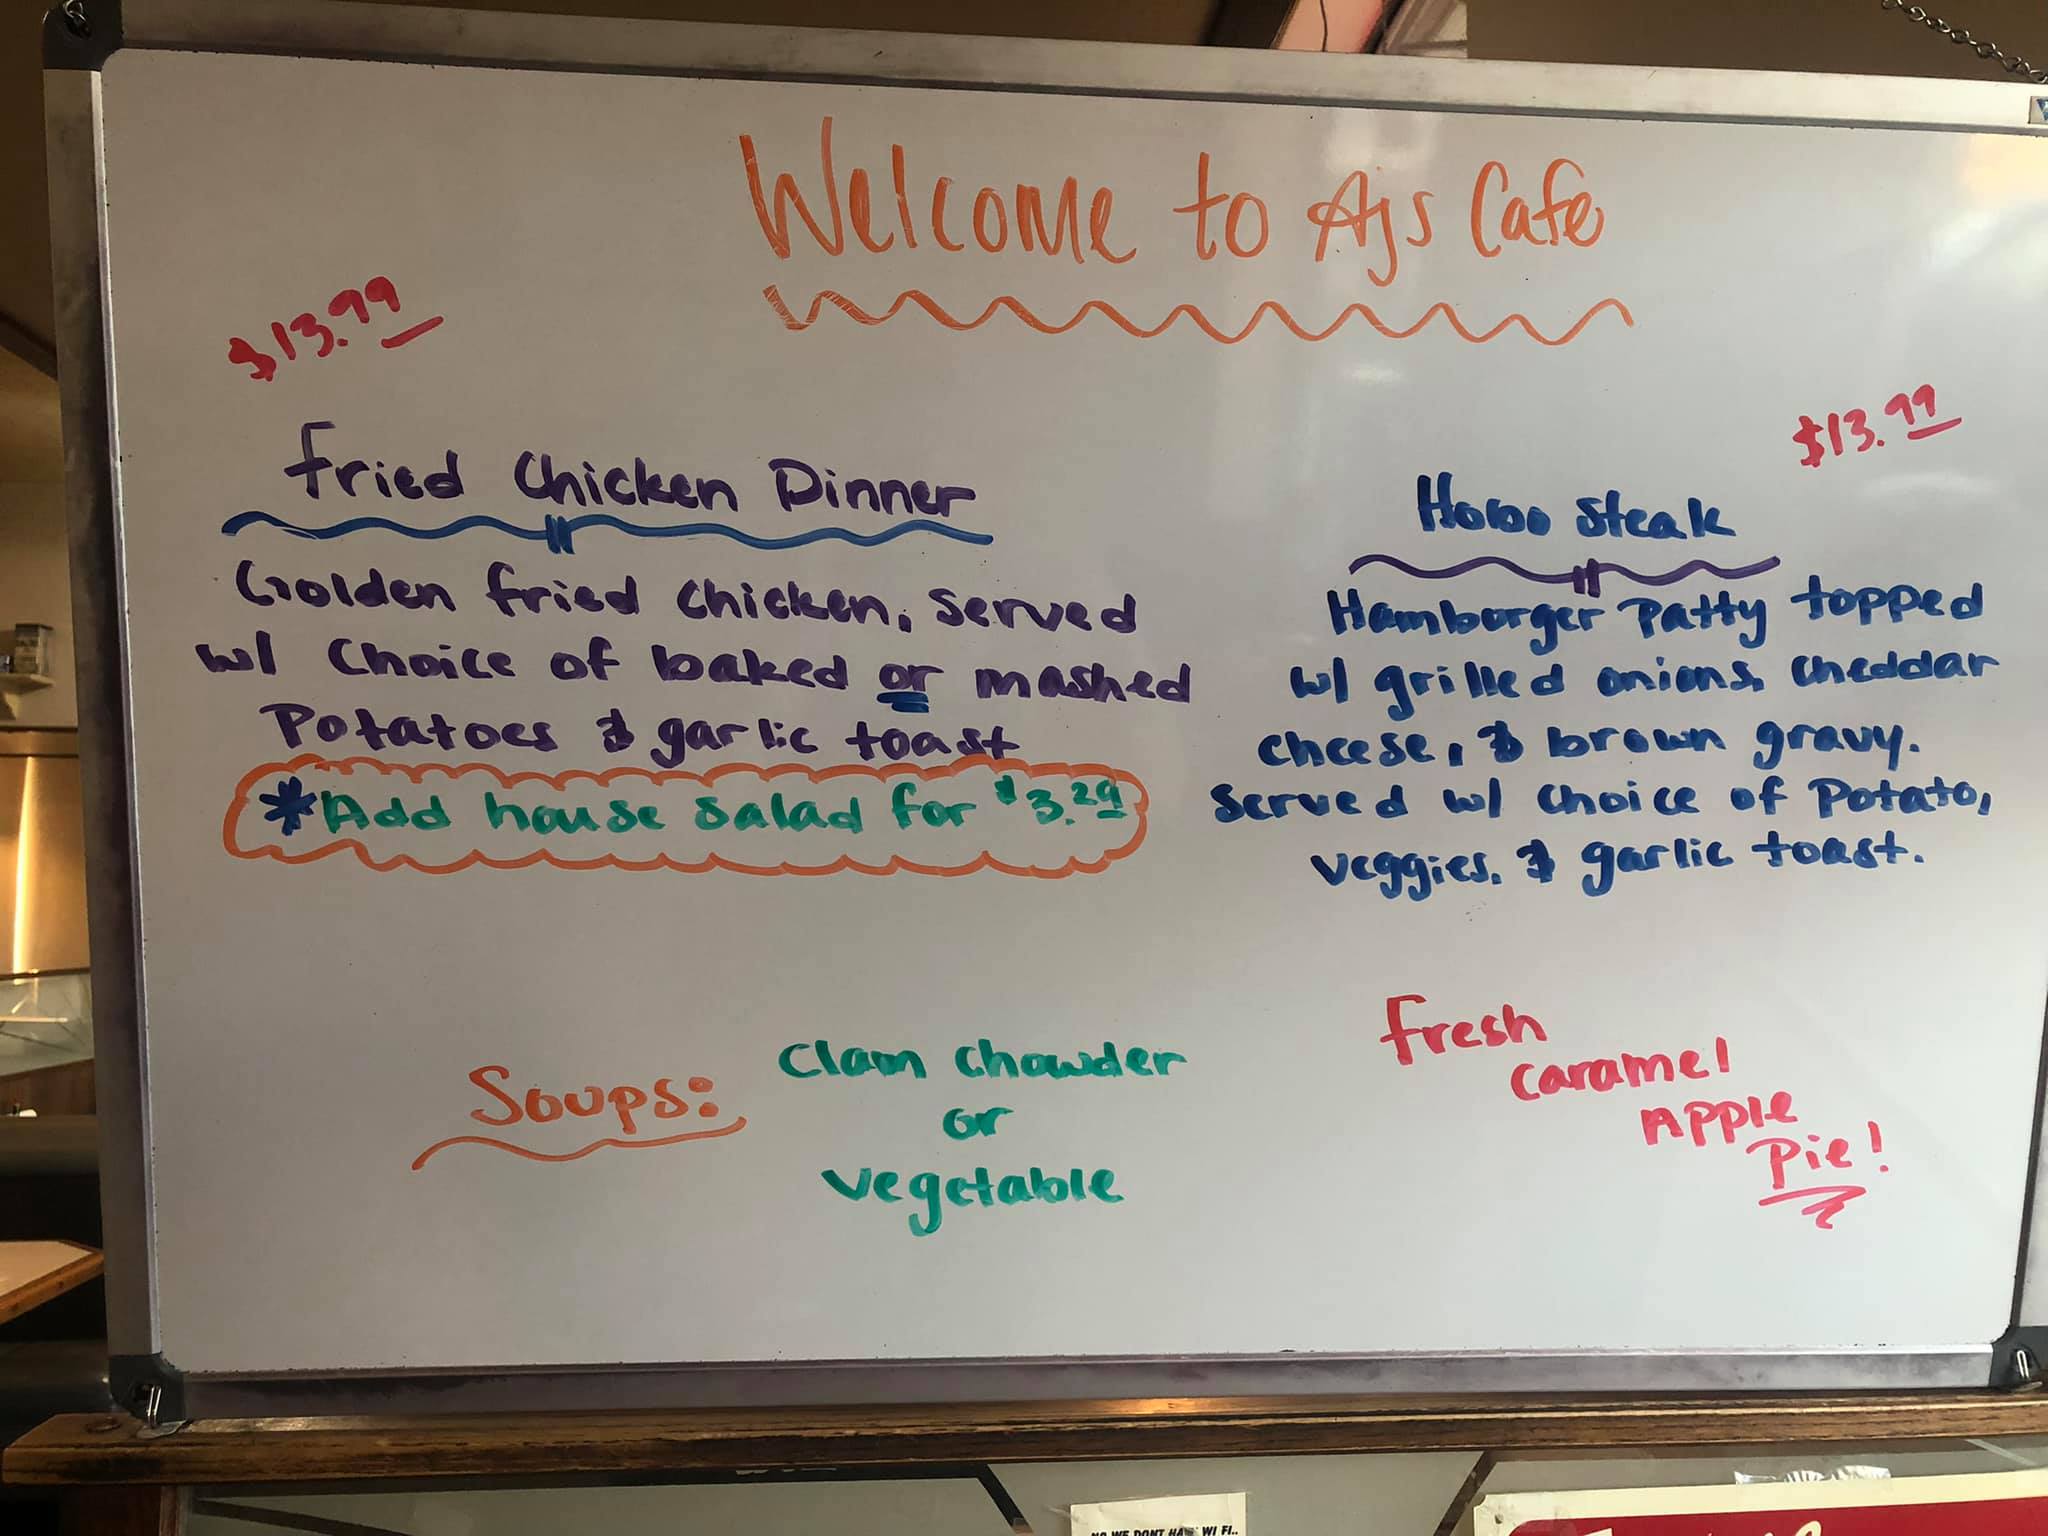 Welcome to Ajs Cafe
$13.99
Fried Chicken Dinner
Golden fried chicken, served
w/ choice of baked or mashed
Potatoes & garlic toast
*Add house salad for $3.29
$13.99
Hobo Steak
Hamburger Patty topped
w/ grilled onions, cheddar
cheese, & brown gravy.
Served w/ choice of Potato,
veggies, & garlic toast.
Soups:
Clam Chowder
or
vegetable
Fresh
Caramel
Apple
Pie!
NO WE DONT HAVE WI FI..